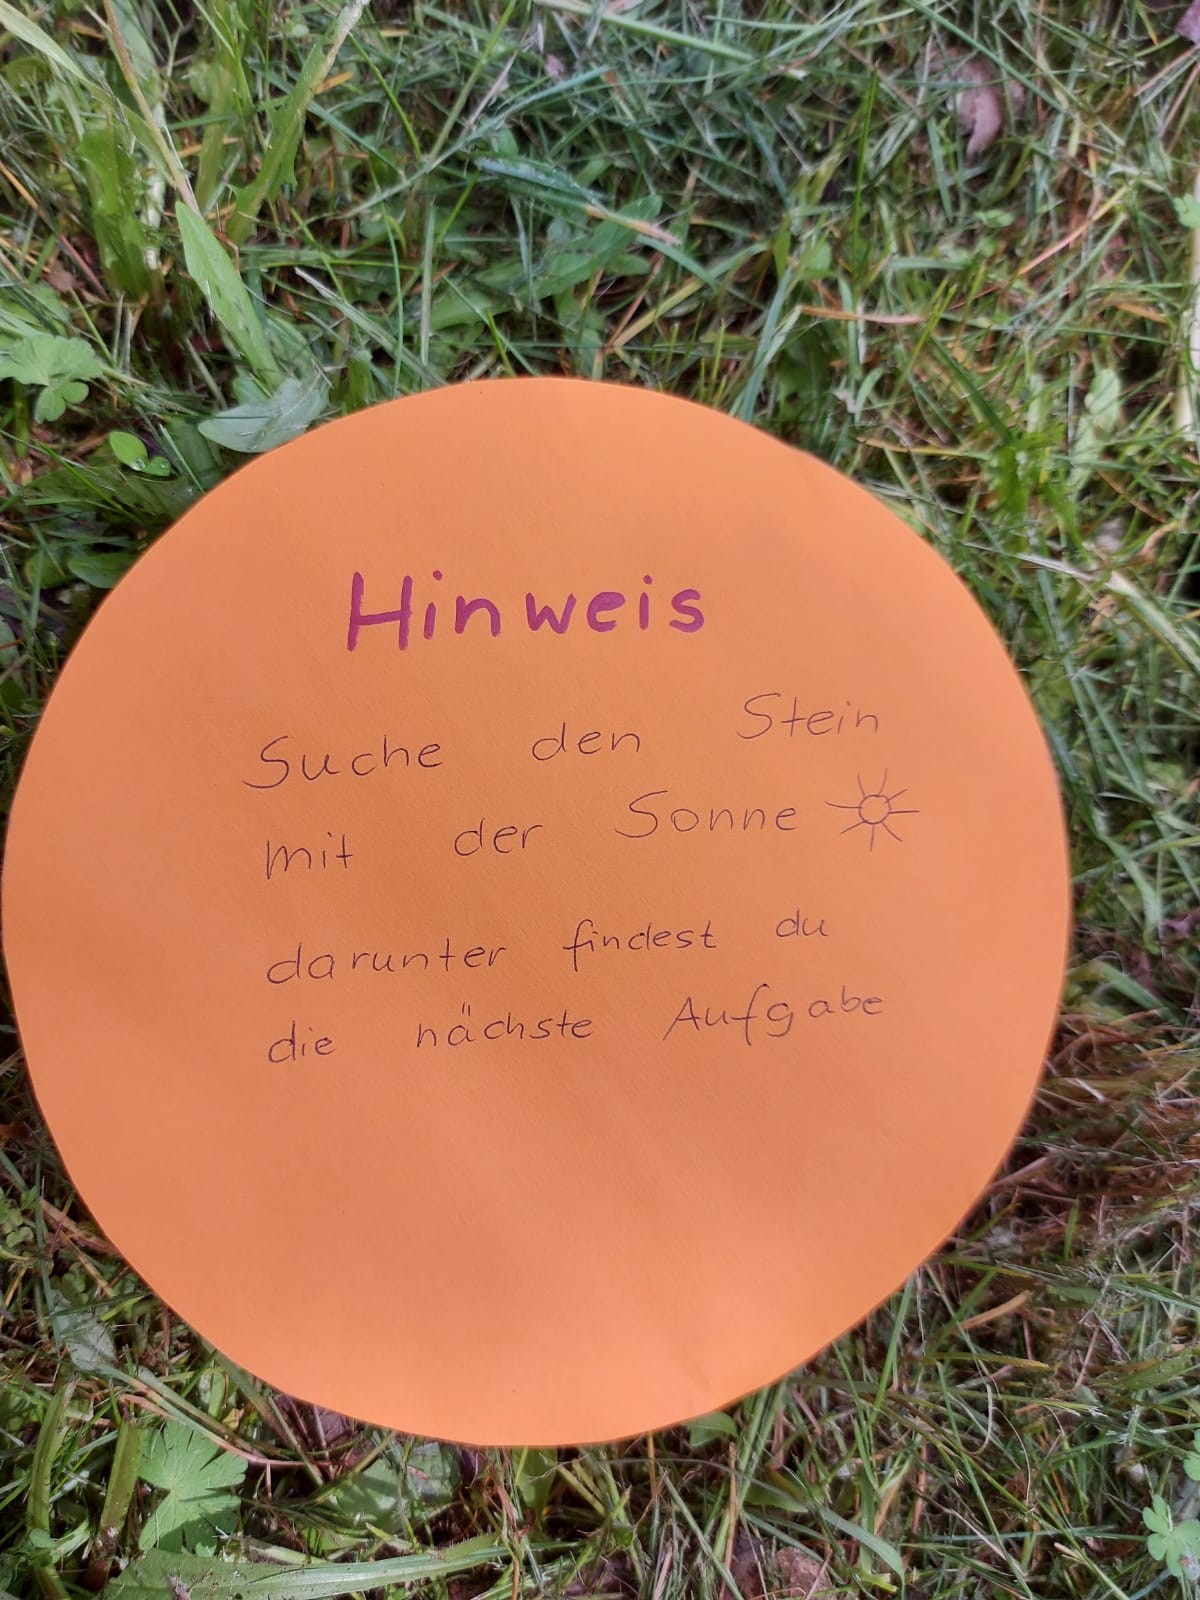 Hinweis
Suche den Stein
mit der Sonne
darunter findest du
die nächste Aufgabe